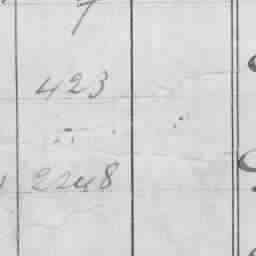 7
423
2248